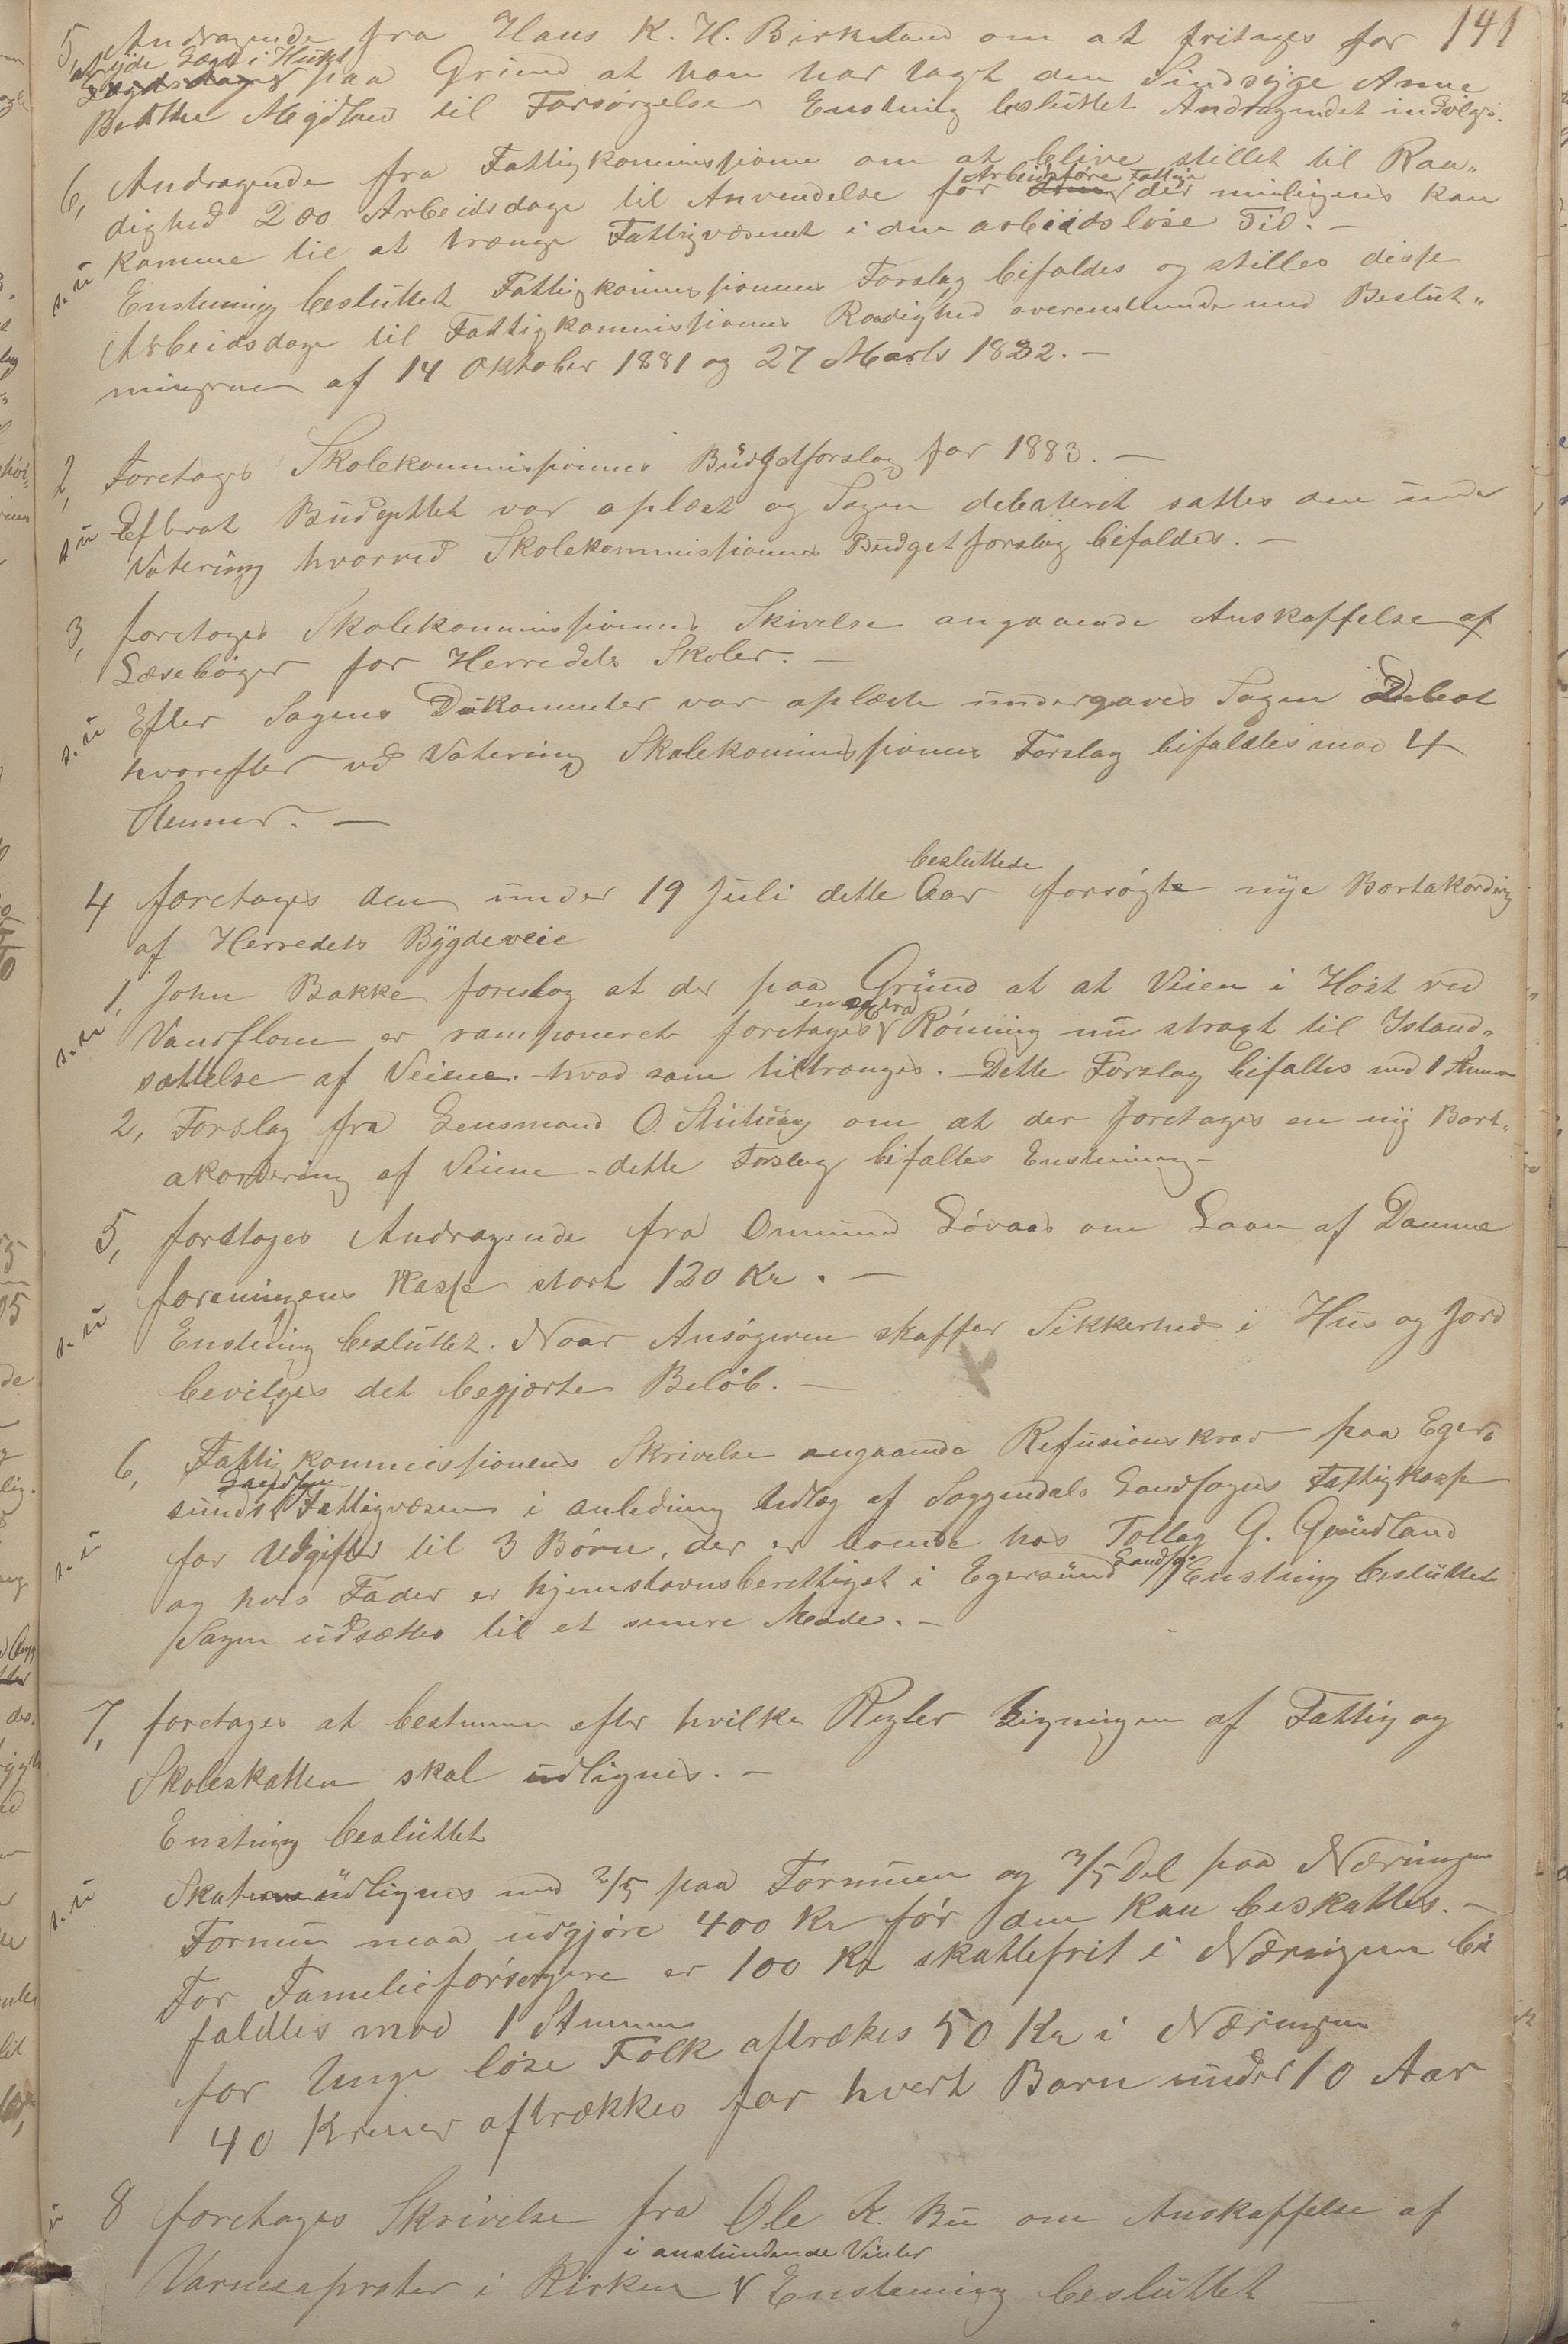 141
5, Andragende fra Haus K. H. Birkeland om at fritages for
at yde Lægd i Huset
paa Grund at han har tagt den Sindsyge Anne
Berthe Mydland til Forsørgelse Enstemig besluttet Andragendet indvilges.
6, Andragende fra Fattigkommissionen om at blive stillet til Raa„
Arbeidsføre Fattige
dighed 200 Arbeidsdage til Anvendelse for der muligens kan
komme til at trænge Fattigvæsenet i den arbeidsløse Tid. –
s. ü
Enstemig besluttet Fattigkommissionens Forslag bifaldes og stilles disse
Arbeidsdage til Fattigkommissionens Raadighed overenstemende med Beslut„
ningerne af 14 Oktober 1881 og 27 Marts 1882. –
2, Foretages Skolekommissionens Büdgetforslag for 1883. –
s ü Efterat Büdgettet var oplæst og Sagen debateret sattes den ünder
Votering hvorved Skolekommissionens Büdgetforslag bifaldes. –
3, foretages Skolekommissionens Skivelse angaaende Anskaffelse af
Læsebøger for Herredets Skoler. –
s. ü Efter Sagens Dokumenter var oplæste ündergaves Sagen Debat
hvorefter ved Votering Skolekommissionens Forslag bifaldtes mod 4
Stemmer. –
besluttede
4 foretages den ünder 19 Jüli dette Aar forsøgte nye Bortakording
af Herredets Bygdeveie
1, John Bakke foreslog at der paa Gründ at at Veien i Høst ved
en extra
s. ü Vandflom er ramponeret foretages Røning nü stragt til Istand„
sættelse af Veiene. hvad som tiltrænges. Dette Forslag bifaltes med 1 Stemme
2, Forslag fra Lensmand O. om at der foretages en ny Bort„
akordering af Veiene – dette Forslag bifaltes Enstemig –
5, foretages Andragende fra Ommund Løvaas om Laan af Damme
foreningens Kasse stort 120 Kr. –
s. ü
Enstemig besluttet. Naar Ansøgeren skaffer Sikkerhed i Hüs og Jord
bevilges det begjærte Beløb. –
6, Fattigkommissionens Skrivelse angaaende Refüsionskrav paa Eger„
Landsogn
sünds Fattigvæsen i anledning Udlæg af Soggendals Landsogns Fattigkasse
s. ü for Udgifter til 3 Børn, der er boende hos Tollag G. Gründland
Landsogn
og hvis Fader er hjemstavnsberettiget i Egersünd Enstemig besluttet
Sagen üdsættes til et senere Møde. –
7, foretages at bestemme efter hvilke Regler Ligningen af Fattig og
Skoleskatten skal üdlignes. –
Enstemig besluttet
s. ü Skaten üdlignes med 2/5 paa Formüen og 3/5 Del paa Næringen
Formüe maa üdgjøre 400 Kr før den kan beskattes. –
For Familieforsørgere er 100 Kr skattefrit i Næringen bi
faldtes mod 1 Stemme
for Unge løse Folk aftrækes 50 Kr i Næringen
40 Kroner aftrækkes for hvert Barn ünder 10 Aar
ü 8 foretages Skrivelse fra Ole K. Bü om Anskaffelse af
i anstundende Vinter
Varmeaprater i Kirken Enstemig besluttet –